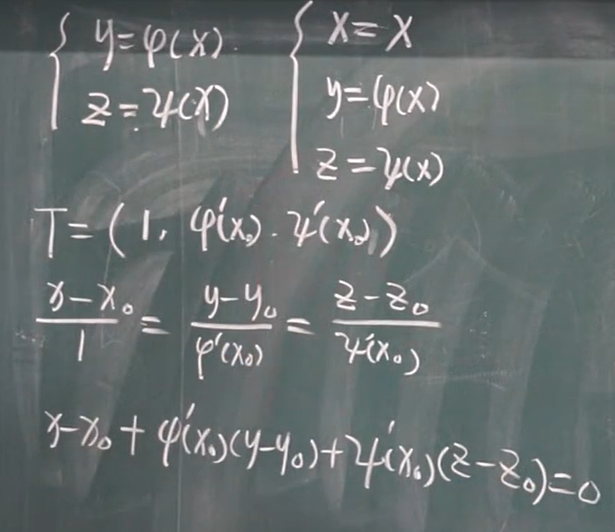 { y=φ(x).
z=ψ(x)
{ x=x
y=φ(x)
z=ψ(x)
T=(1, φ'(x₀). ψ'(x₀))
(x-x₀)/1 = (y-y₀)/φ'(x₀) = (z-z₀)/ψ'(x₀)
x-x₀+φ'(x₀)(y-y₀)+ψ'(x₀)(z-z₀)=0